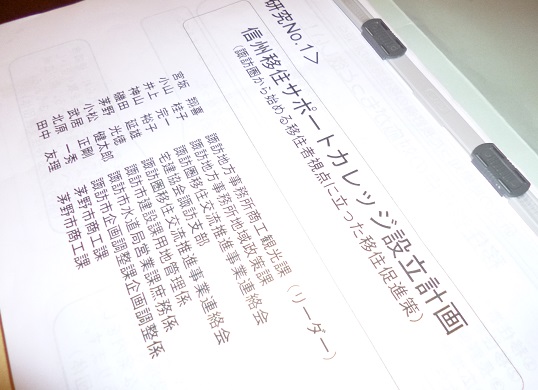 研究No.1>
信州移住サポートカレッジ設立計画
(諏訪圏から始める移住者視点に立った移住促進策)
宮坂 諏訪地方事務所商工観光課(リーダー)
小山 桂子 諏訪地方事務所地域政策課
井上 諏訪圏移住交流推進事業連絡会
神山 裕子 宅建協会諏訪支部
磯田 延雄 諏訪圏移住交流推進事業連絡会
茅野 光徳 諏訪市建設課用地管理係
小松 健太郎 諏訪市水道局営業課庶務係
武居 正剛 諏訪市企画調整課企画調整係
北原 一秀 茅野市商工課
田中 友理 茅野市商工課